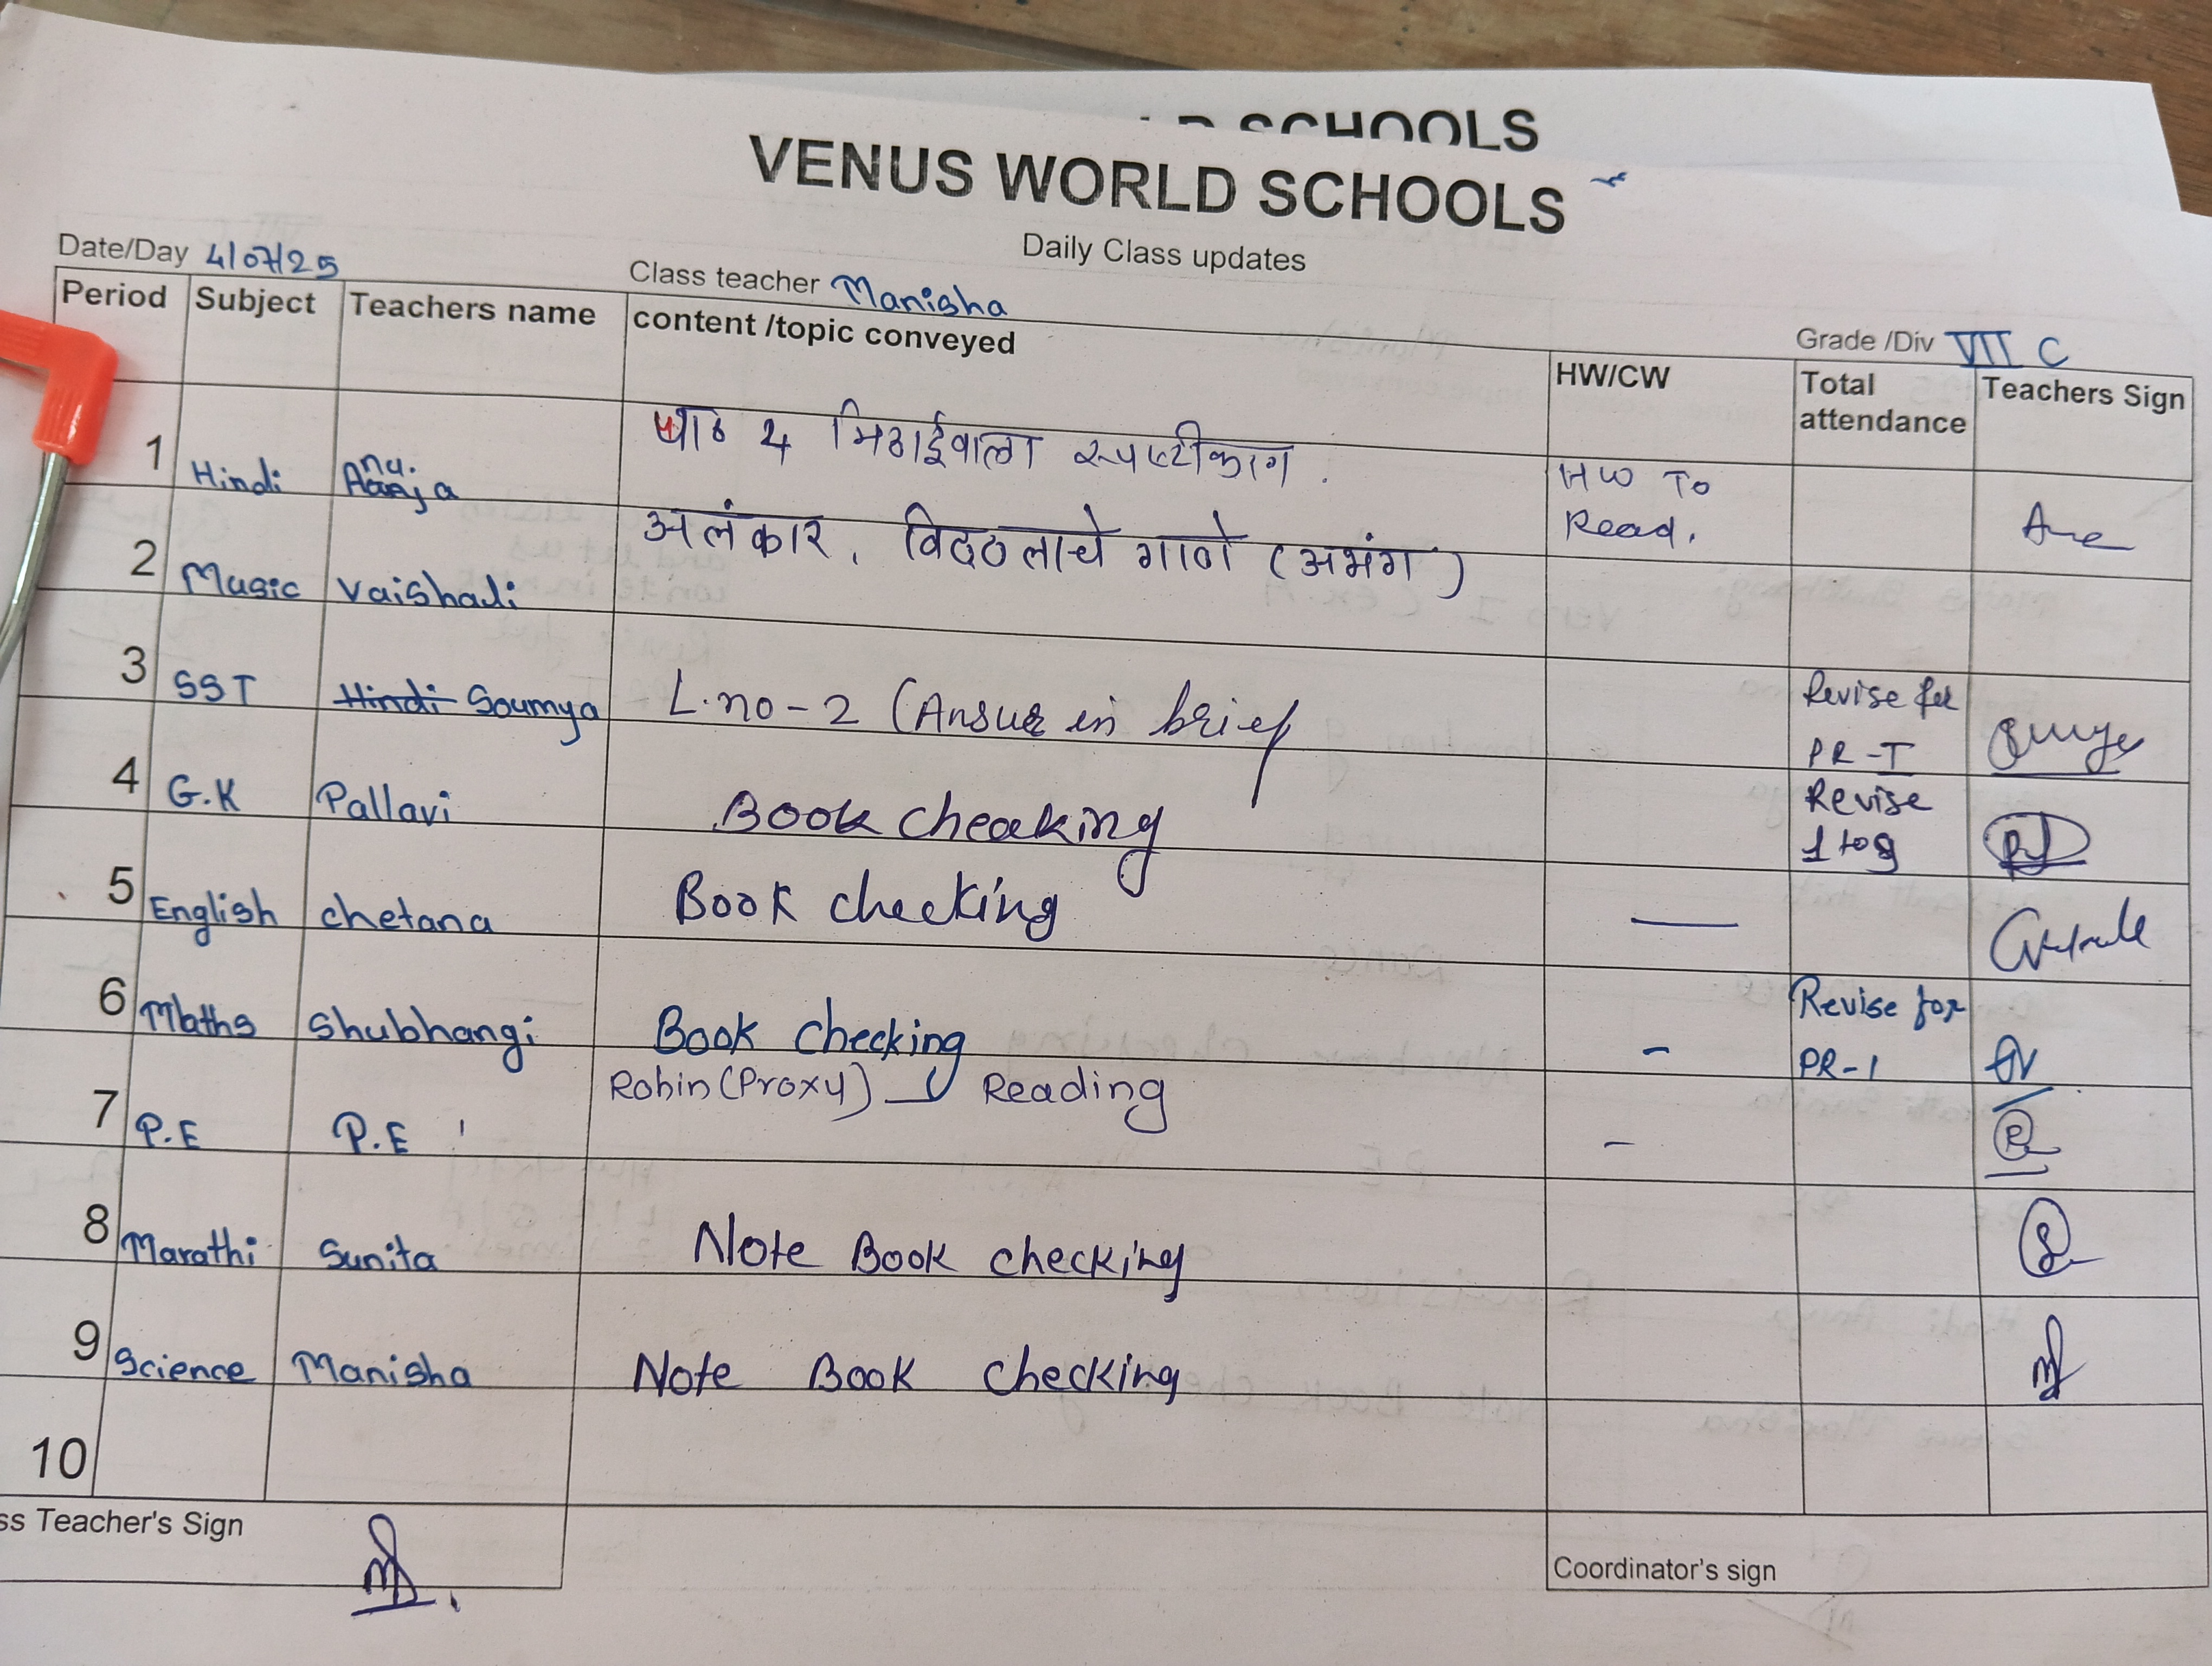 SCHOOLS
VENUS WORLD SCHOOLS
Daily Class updates
Date/Day 4/07/25 Class teacher Manisha Grade /Div VII C
Period Subject Teachers name content /topic conveyed HW/CW Total attendance Teachers Sign
1 Hindi Anuja पाठ 4 मिठाईवाला स्पष्टीकरण. HW To Read.
2 Music Vaishali अलंकार, विठ्ठलाचे गाणे (अभंग)
3 SST Hindi Soumya L.no-2 (Answer in brief Revise for PR-I
4 G.K Pallavi Book cheaking Revise 1 to 8
5 English chetana Book checking —
6 Maths Shubhangi Book checking - Revise for PR-1
7 P.E P.E Robin (Proxy) Reading -
8 Marathi Sunita Note Book checking
9 Science Manisha Note Book checking
10
ss Teacher's Sign
Coordinator's sign